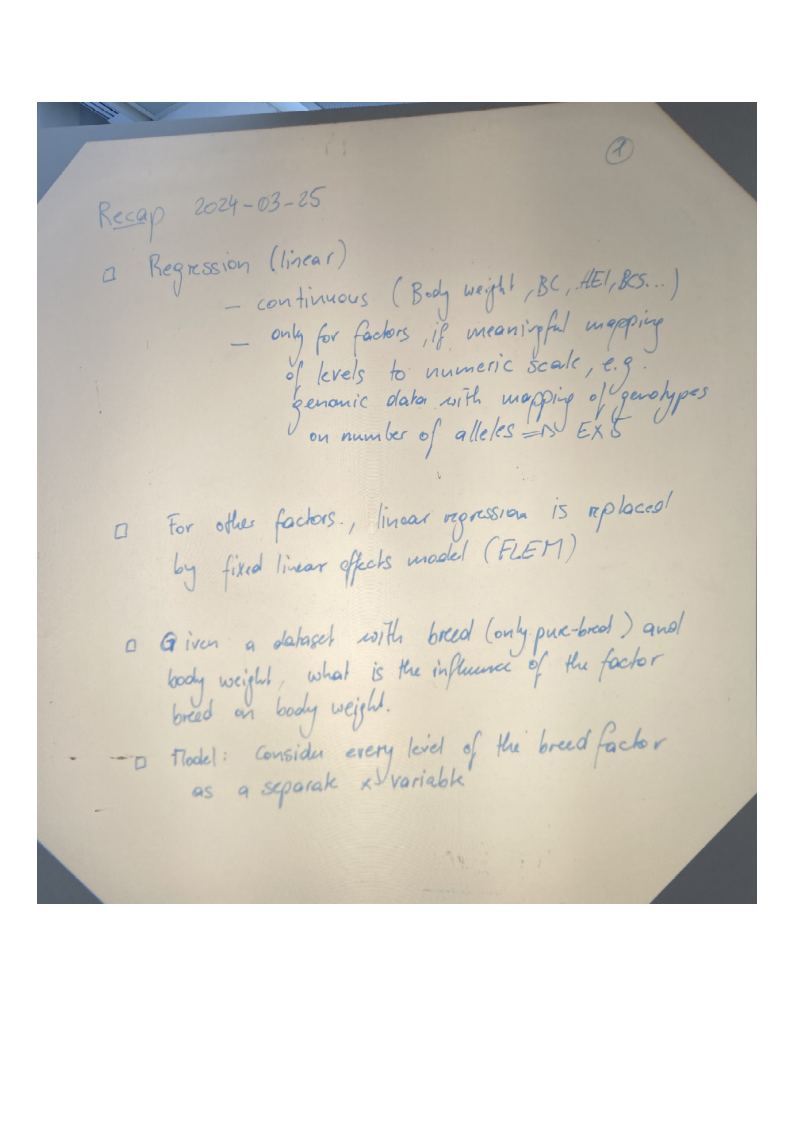 1
Recap 2024-03-25
□ Regression (linear)
– continuous (Body weight, BC, HEI, BCS...)
– only for factors, if meaningful mapping
of levels to numeric scale, e.g.
genomic data with mapping of genotypes
on number of alleles => EX5
□ For other factors, linear regression is replaced
by fixed linear effects model (FLEM)
□ Given a dataset with breed (only pure-bred) and
body weight, what is the influence of the factor
breed on body weight.
□ Model: Consider every level of the breed factor
as a separate x-variable